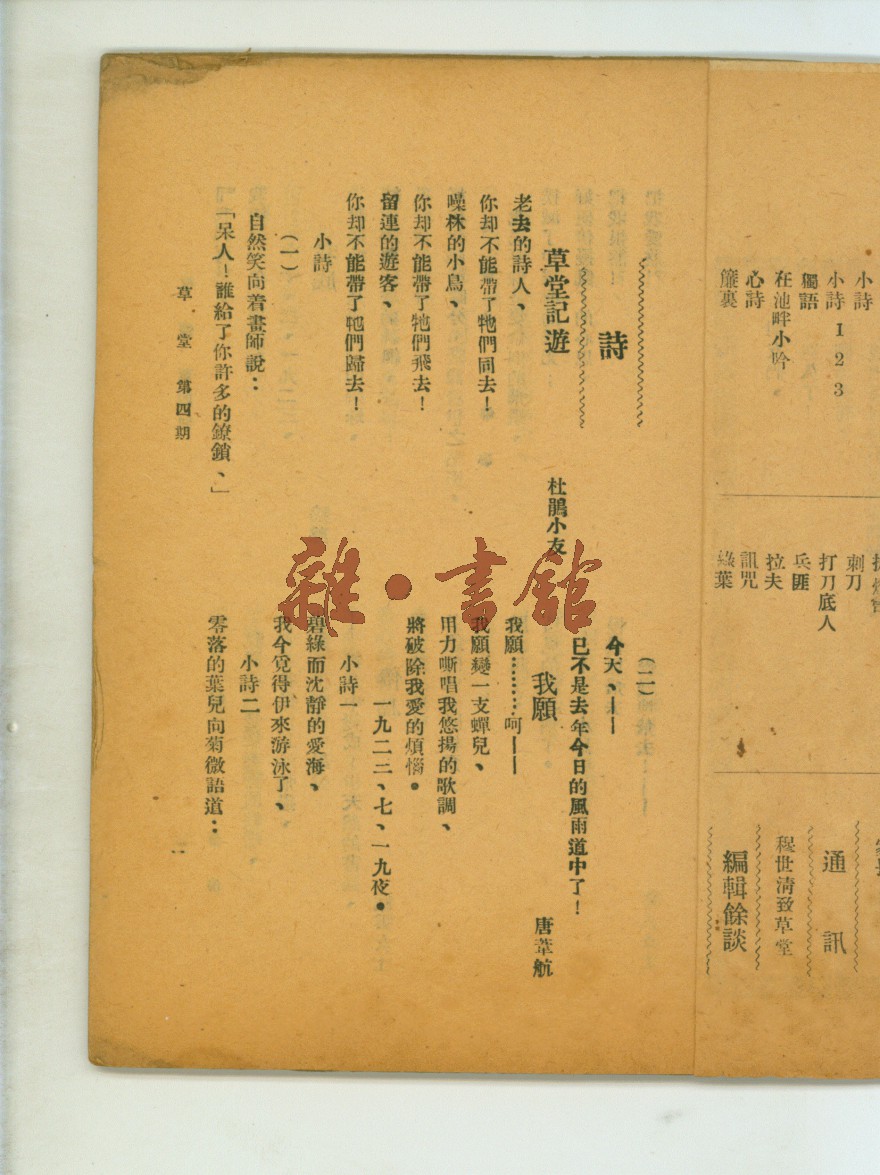 小詩
小詩123
獨語
在池畔小吟
心詩
簾裏
刺刀
打刀底人
兵匪
拉夫
訊咒
綠葉
通訊
穆世清致草堂
編輯餘談
詩
草堂記遊
杜鵑小友
老去的詩人、
你却不能帶了牠們同去！
噪林的小鳥、
你却不能帶了牠們飛去！
留連的遊客、
你却不能帶了牠們歸去！
小詩
（一）
自然笑向着畫師說：
「呆人！誰給了你許多的鐐鎖、」
（二）
今天、——
已不是去年今日的風雨道中了！
我願
唐葦航
我願………呵——
我願變一支蟬兒、
用力嘶唱我悠揚的歌調、
將破除我愛的煩惱。
一九二二、七、一九夜。
小詩一
碧綠而沈靜的愛海、
我今竟得伊來游泳了、
小詩二
零落的葉兒向菊微語道：
草堂 第四期
一
雜·書館